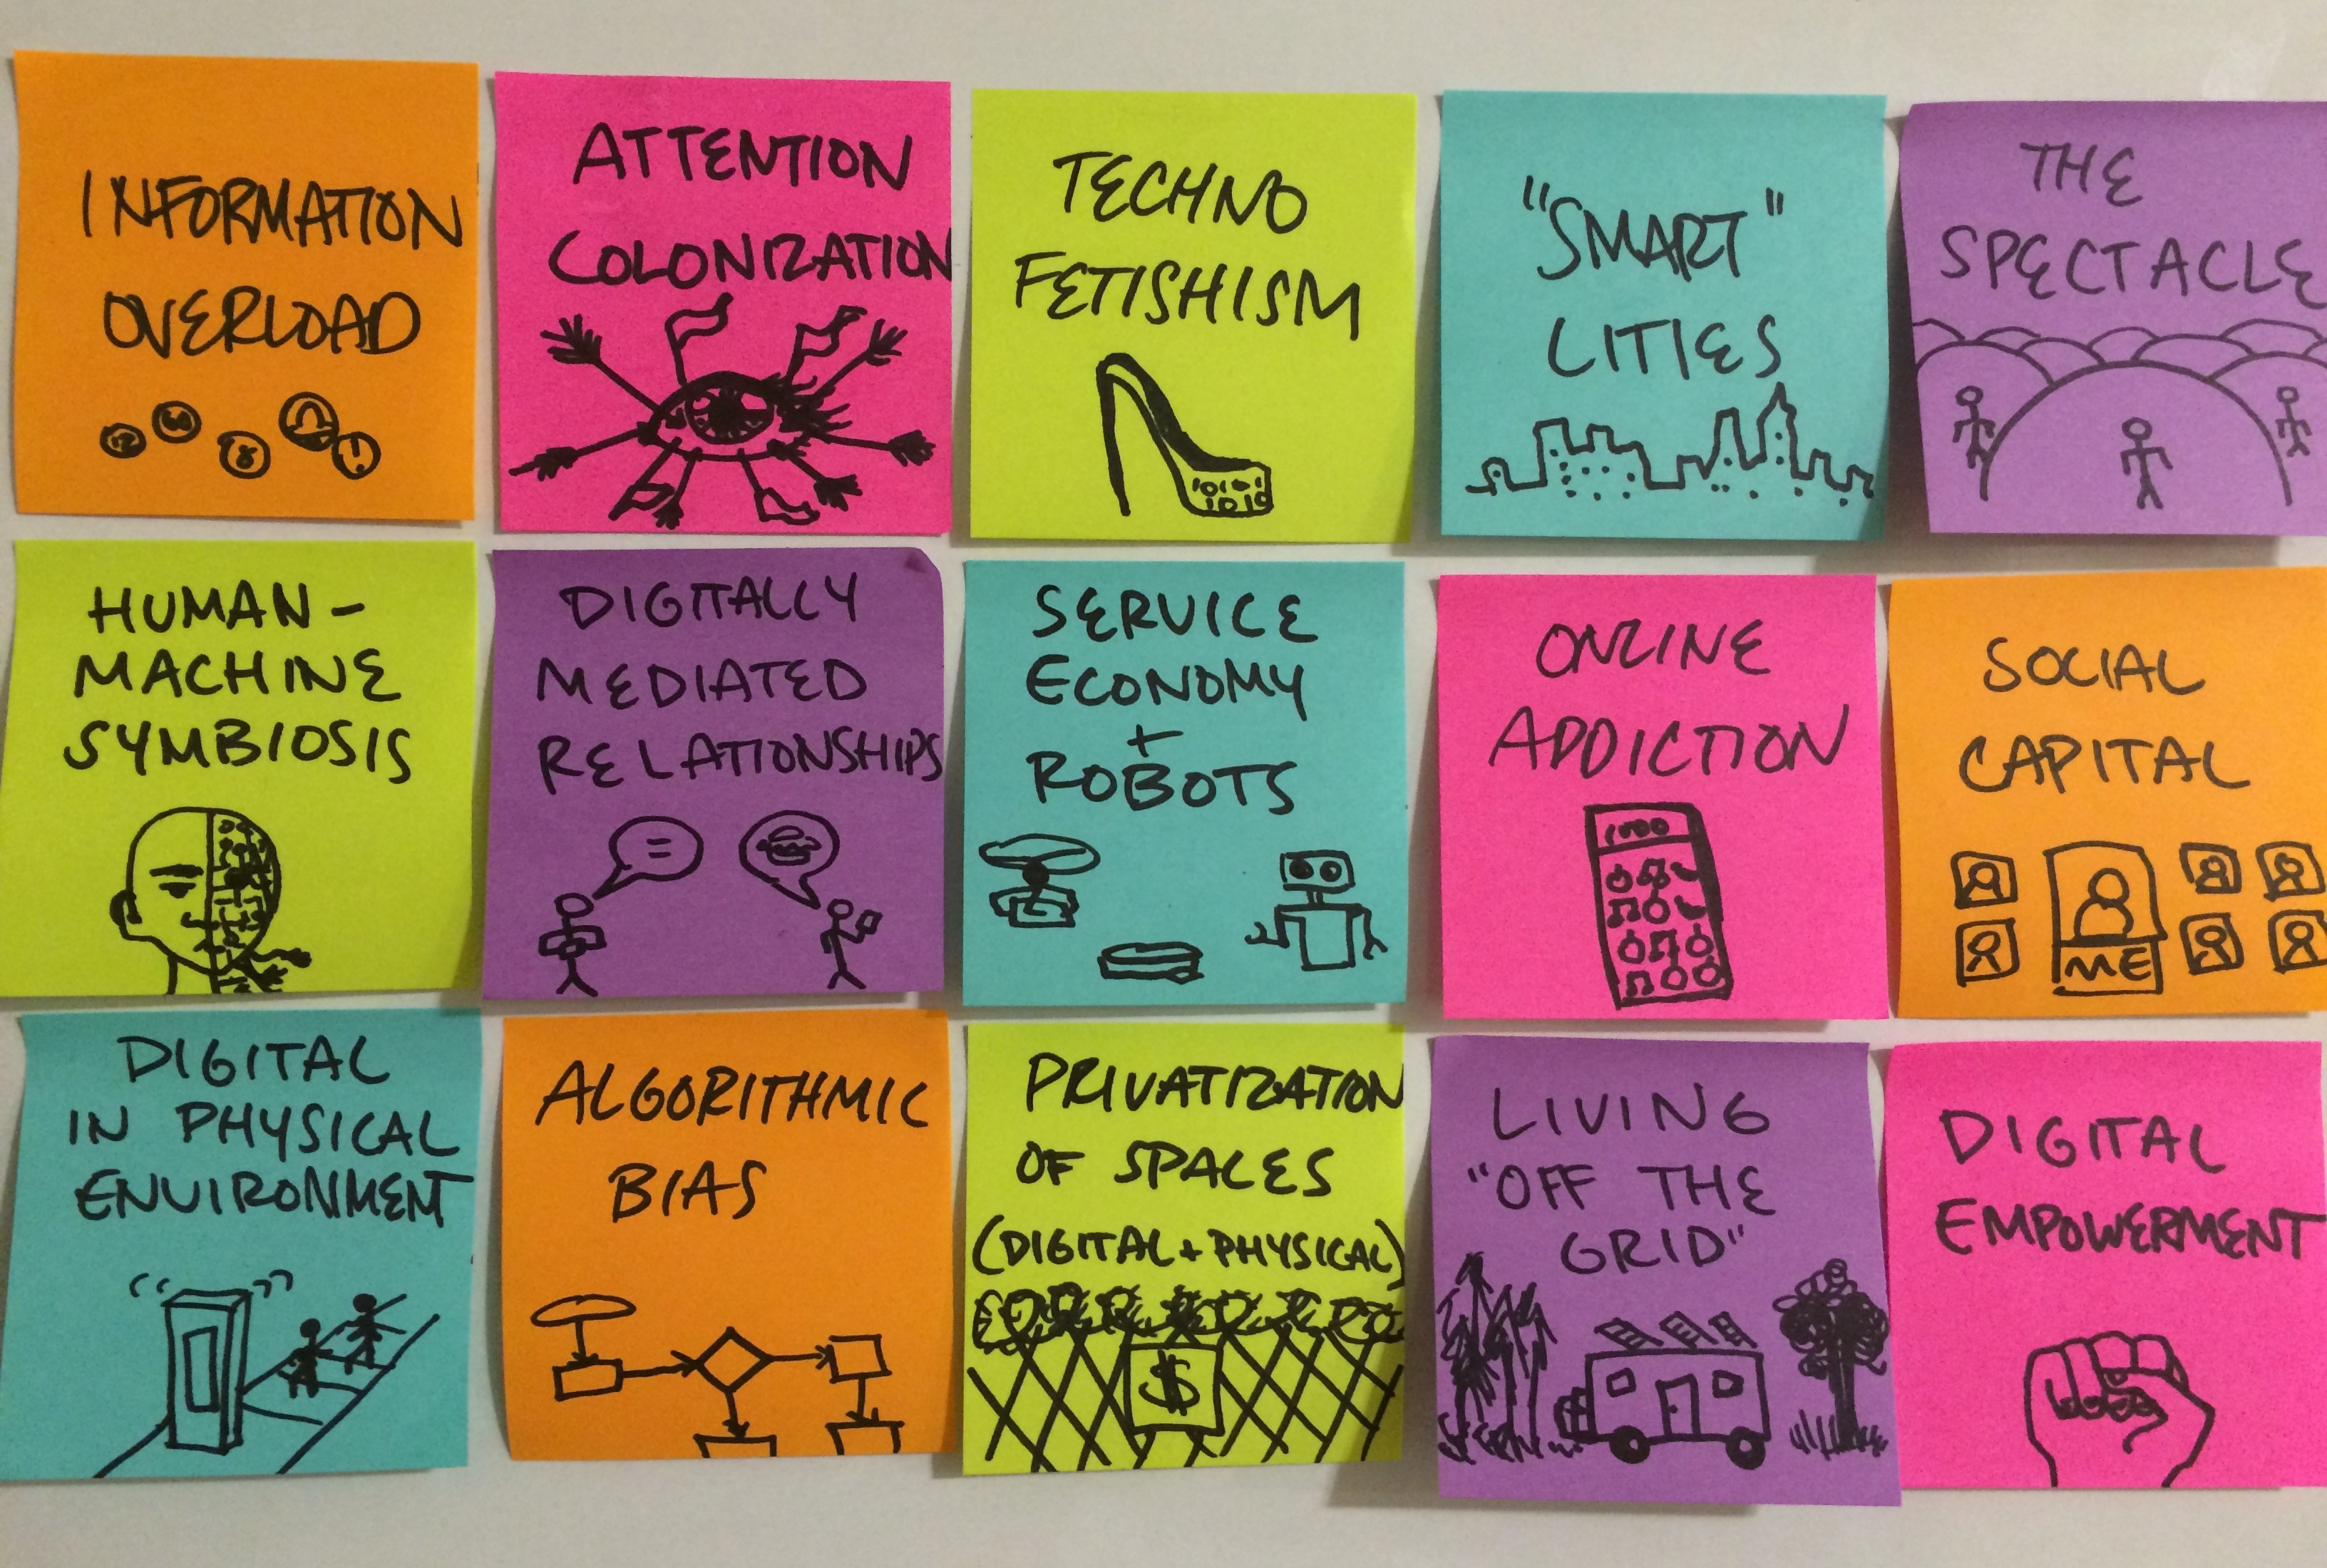 INFORMATION
OVERLOAD
ATTENTION
COLONIZATION
TECHNO
FETISHISM
1010 1
1010
"SMART"
CITIES
THE
SPECTACLE
HUMAN-
MACHINE
SYMBIOSIS
DIGITALLY
MEDIATED
RELATIONSHIPS
SERVICE
ECONOMY
+
ROBOTS
ONLINE
ADDICTION
SOCIAL
CAPITAL
ME
DIGITAL
IN PHYSICAL
ENVIRONMENT
ALGORITHMIC
BIAS
PRIVATIZATION
OF SPACES
(DIGITAL + PHYSICAL)
$
LIVING
"OFF THE
GRID"
DIGITAL
EMPOWERMENT